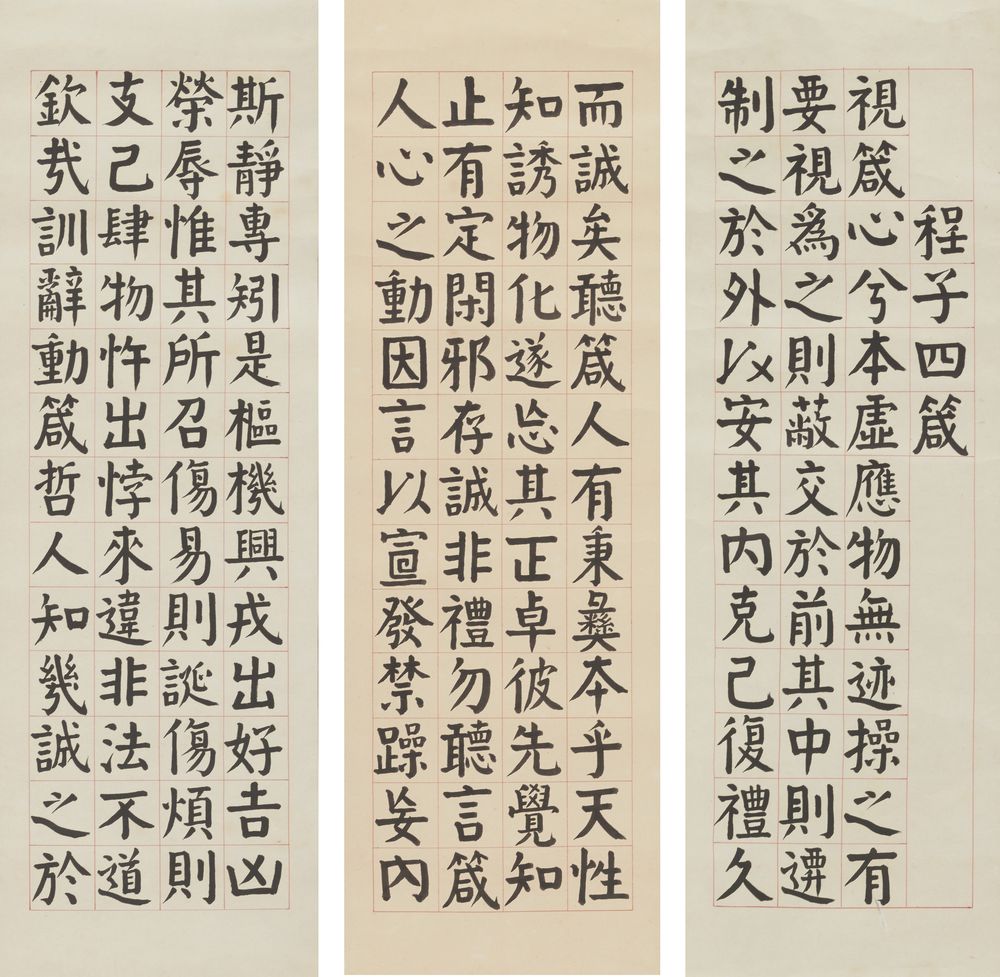 程子四箴
視箴心兮本虛應物無迹操之有
要視爲之則蔽交於前其中則遷
制之於外以安其內克己復禮久
而誠矣聽箴人有秉彝本乎天性
知誘物化遂忘其正卓彼先覺知
止有定閑邪存誠非禮勿聽言箴
人心之動因言以宣發禁躁妄內
斯靜專矧是樞機興戎出好吉凶
榮辱惟其所召傷易則誕傷煩則
支己肆物忤出悖來違非法不道
欽哉訓辭動箴哲人知幾誠之於